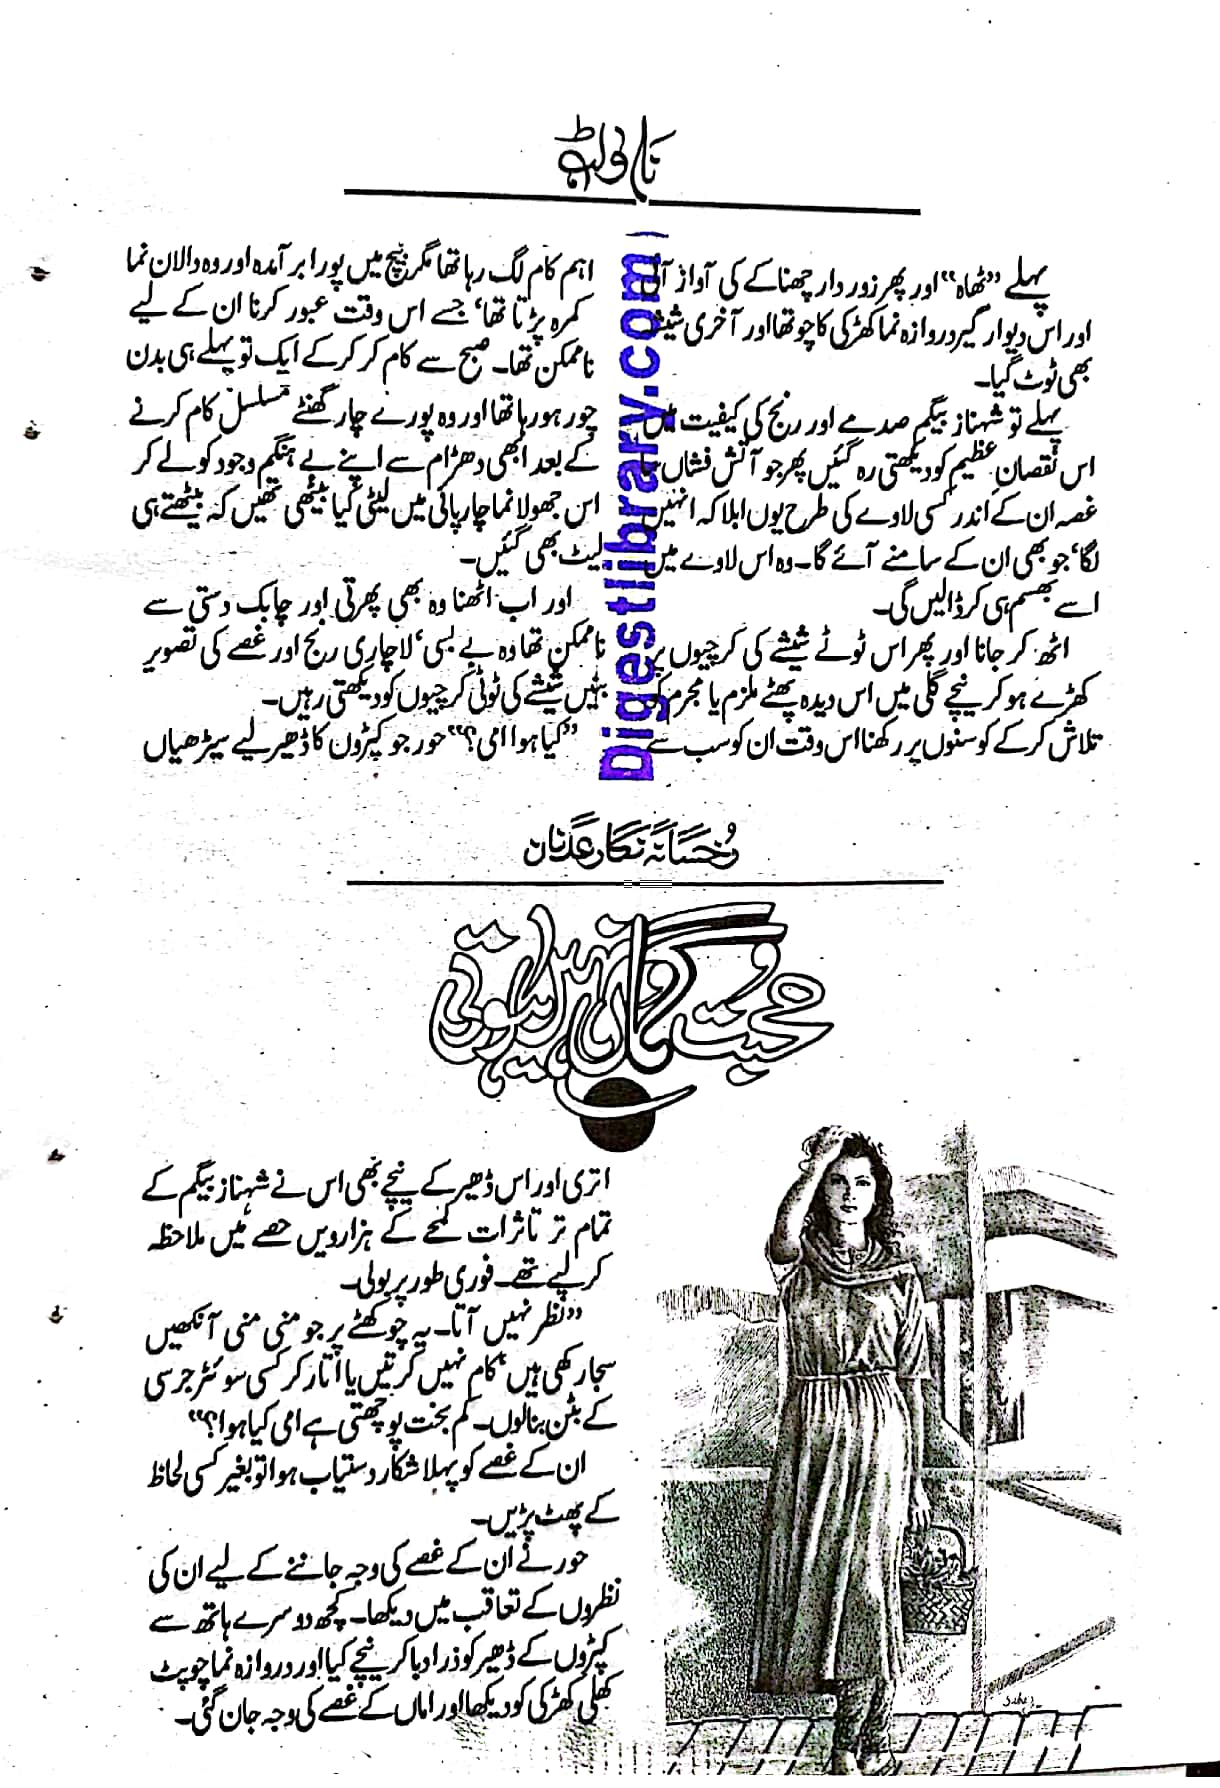 ناولٹ
پہلے ”ٹھاہ“ اور پھر زور دار چھناکے کی آواز آئی
اور اس دیوار گیر دروازہ نما کھڑکی کا چوتھا اور آخری شیشہ
بھی ٹوٹ گیا۔
پہلے تو شہناز بیگم صدمے اور رنج کی کیفیت میں
اس نقصان عظیم کو دیکھتی رہ گئیں پھر جو آتش فشاں
غصہ ان کے اندر کسی لاوے کی طرح یوں ابلا کہ انہیں
لگا‘ جو بھی ان کے سامنے آئے گا۔ وہ اس لاوے میں
اسے بھسم ہی کر ڈالیں گی۔
اٹھ کر جانا اور پھر اس ٹوٹے شیشے کی کرچیوں پر
کھڑے ہو کر نیچے گلی میں اس دیدہ پھٹے ملزم یا مجرم کو
تلاش کرکے کوسنوں پر رکھنا اس وقت ان کو سب سے
اہم کام لگ رہا تھا مگر بیچ میں پورا برآمدہ اور وہ دالان نما
کمرہ پڑتا تھا‘ جسے اس وقت عبور کرنا ان کے لیے
ناممکن تھا۔ صبح سے کام کر کرکے ایک تو پہلے ہی بدن
چور ہو رہا تھا اور وہ پورے چار گھنٹے مسلسل کام کرنے
کے بعد ابھی دھڑام سے اپنے بے ہنگم وجود کو لے کر
اس جھولا نما چارپائی میں لیٹی گیا بیٹھی تھیں کہ بیٹھتے ہی
لیٹ بھی گئیں۔
اور اب اٹھنا وہ بھی پھرتی اور چابک دستی سے
ناممکن تھا وہ بے بسی‘ لاچاری رنج اور غصے کی تصویر
بنیں شیشے کی ٹوٹی کرچیوں کو دیکھتی رہیں۔
”کیا ہوا امی؟“ حور جو کپڑوں کا ڈھیر لیے سیڑھیاں
Digestlibrary.com
رخسانہ نگار عدنان
محبت وہ گمان نہیں ہوتی
اتری اور اس ڈھیر کے نیچے بھی اس نے شہناز بیگم کے
تمام تر تاثرات لمحے کے ہزارویں حصے میں ملاحظہ
کر لیے تھے۔ فوری طور پر بولی۔
”نظر نہیں آتا۔ یہ چوکھٹے پر جو منی منی آنکھیں
سجا رکھی ہیں‘ کام نہیں کرتیں یا اتار کر کسی سوئٹر جرسی
کے بٹن بنالوں۔ کم بخت پوچھتی ہے امی کیا ہوا؟“
ان کے غصے کو پہلا شکار دستیاب ہوا تو بغیر کسی لحاظ
کے پھٹ پڑیں۔
حور نے ان کے غصے کی وجہ جاننے کے لیے ان کی
نظروں کے تعاقب میں دیکھا۔ کچھ دوسرے ہاتھ سے
کپڑوں کے ڈھیر کو ذرا دبا کر نیچے کیا اور دروازہ نما چوپٹ
کھلی کھڑکی کو دیکھا اور اماں کے غصے کی وجہ جان گئی۔